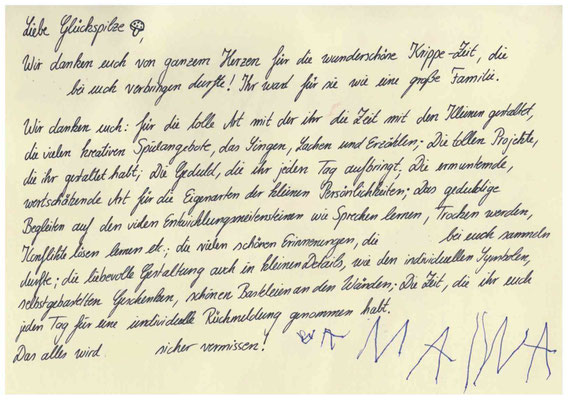 Liebe Glückspilze,
Wir danken euch von ganzem Herzen für die wunderschöne Krippe-Zeit, die
bei euch verbringen durfte! Ihr ward für sie wie eine große Familie.
Wir danken euch: für die tolle Art mit der ihr die Zeit mit den Kleinen gestaltet,
die vielen kreativen Spielangebote, das Singen, Lachen und Erzählen; Die tollen Projekte,
die ihr gestaltet habt; Die Geduld, die ihr jeden Tag aufbringt; Die ermunternde,
wertschätzende Art für die Eigenarten der kleinen Persönlichkeiten; Das geduldige
Begleiten auf den vielen Entwicklungsmeilensteinen wie Sprechen lernen, Trocken werden,
Konflikte lösen lernen etc.; die vielen schönen Erinnerungen, die bei euch sammeln
durfte; die liebevolle Gestaltung auch in kleinen Details, wie den individuellen Symbolen,
selbstgebastelten Geschenken, schönen Basteleien an den Wänden; Die Zeit, die ihr euch
jeden Tag für eine individuelle Rückmeldung genommen habt.
Das alles wird sicher vermissen!